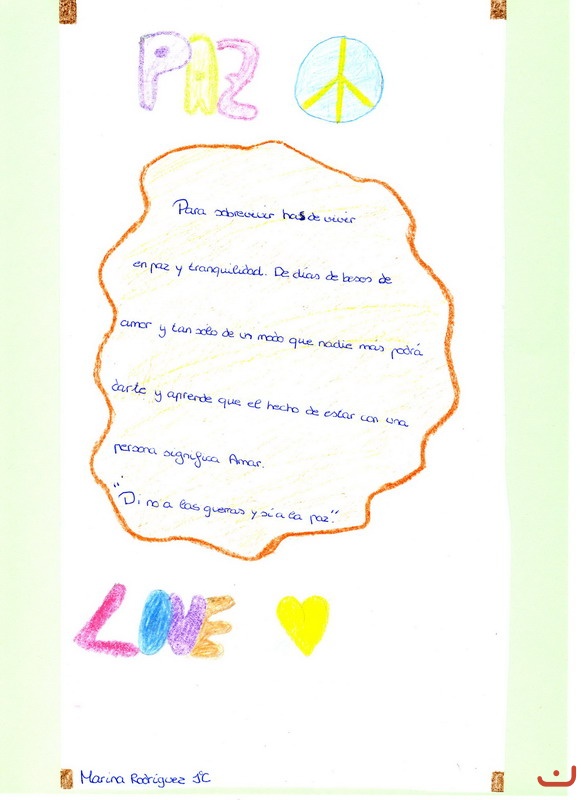 PAZ
Para sobrevivir has de vivir
en paz y tranquilidad. De días de besos de
amor y tan sólo de un modo que nadie más podrá
darte y aprende que el hecho de estar con una
persona significa Amar.
"Di no a las guerras y sí a la paz".
LOVE
Marina Rodríguez 5ºC